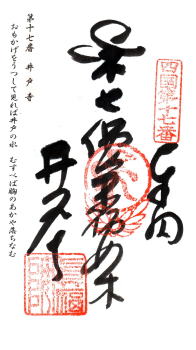 四國第十七番
奉納
七佛薬師如来
井戸寺
第十七番 井戸寺
おもかげをうつして見れば井戸の水
むすべば胸のあかや落ちなむ